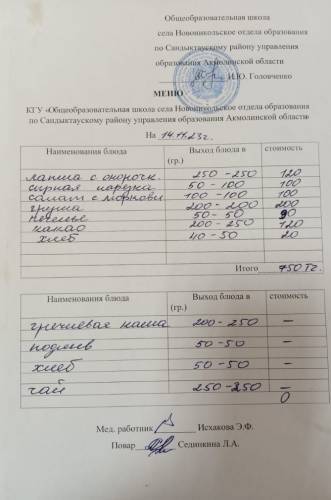 Общеобразовательная школа
села Новоникольское отдела образования
по Сандыктаускому району управления
образования Акмолинской области
И.Ю. Головченко
МЕНЮ
КГУ «Общеобразовательная школа села Новоникольское отдела образования
по Сандыктаускому району управления образования Акмолинской области»
На 14.11.23г.
Наименования блюда Выход блюда в (гр.) стоимость
лапша с окорочк. 250-250 120
сырная нарезка 50-100 100
салат с моркови 100-100 100
груша 200-200 200
печенье 50-50 90
какао 200-250 120
хлеб 40-50 20
Итого 750 тг.
Наименования блюда Выход блюда в (гр.) стоимость
гречневая каша 200-250 —
подлив 50-50 —
хлеб 50-50 —
чай 250-250 —
0
Мед. работник Исхакова Э.Ф.
Повар Сединкина Л.А.